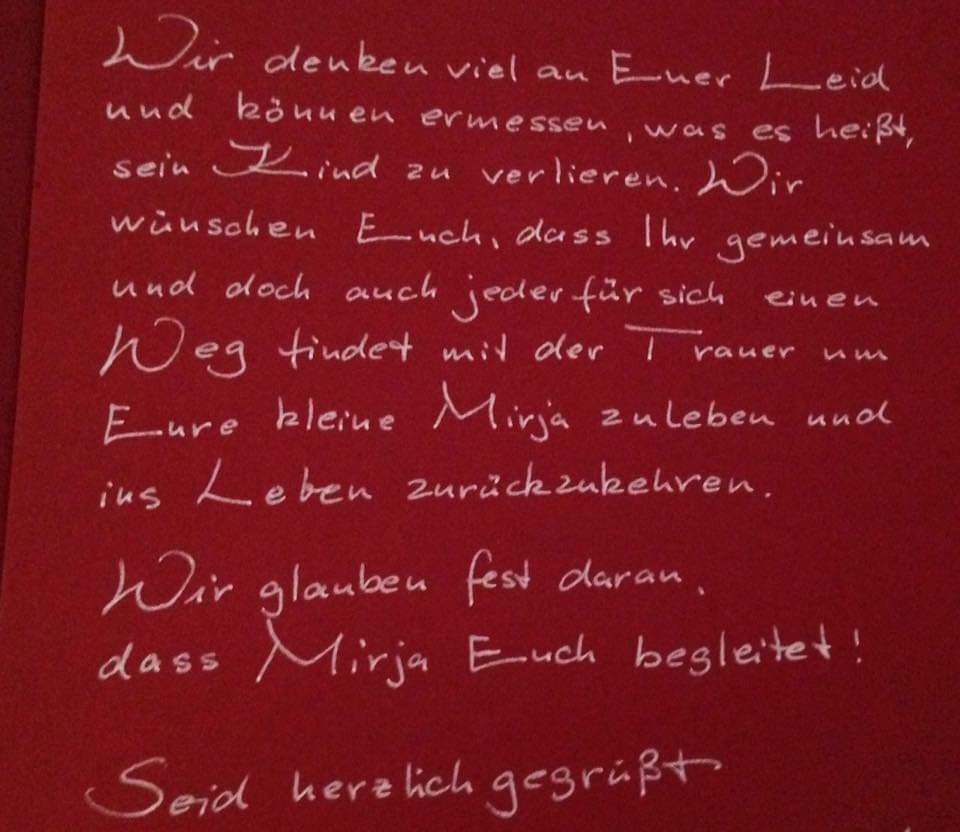 Wir denken viel an Euer Leid
und können ermessen, was es heißt,
sein Kind zu verlieren. Wir
wünschen Euch, dass Ihr gemeinsam
und doch auch jeder für sich einen
Weg findet mit der Trauer um
Eure kleine Mirja zu leben und
ins Leben zurückzukehren.
Wir glauben fest daran,
dass Mirja Euch begleitet!
Seid herzlich gegrüßt